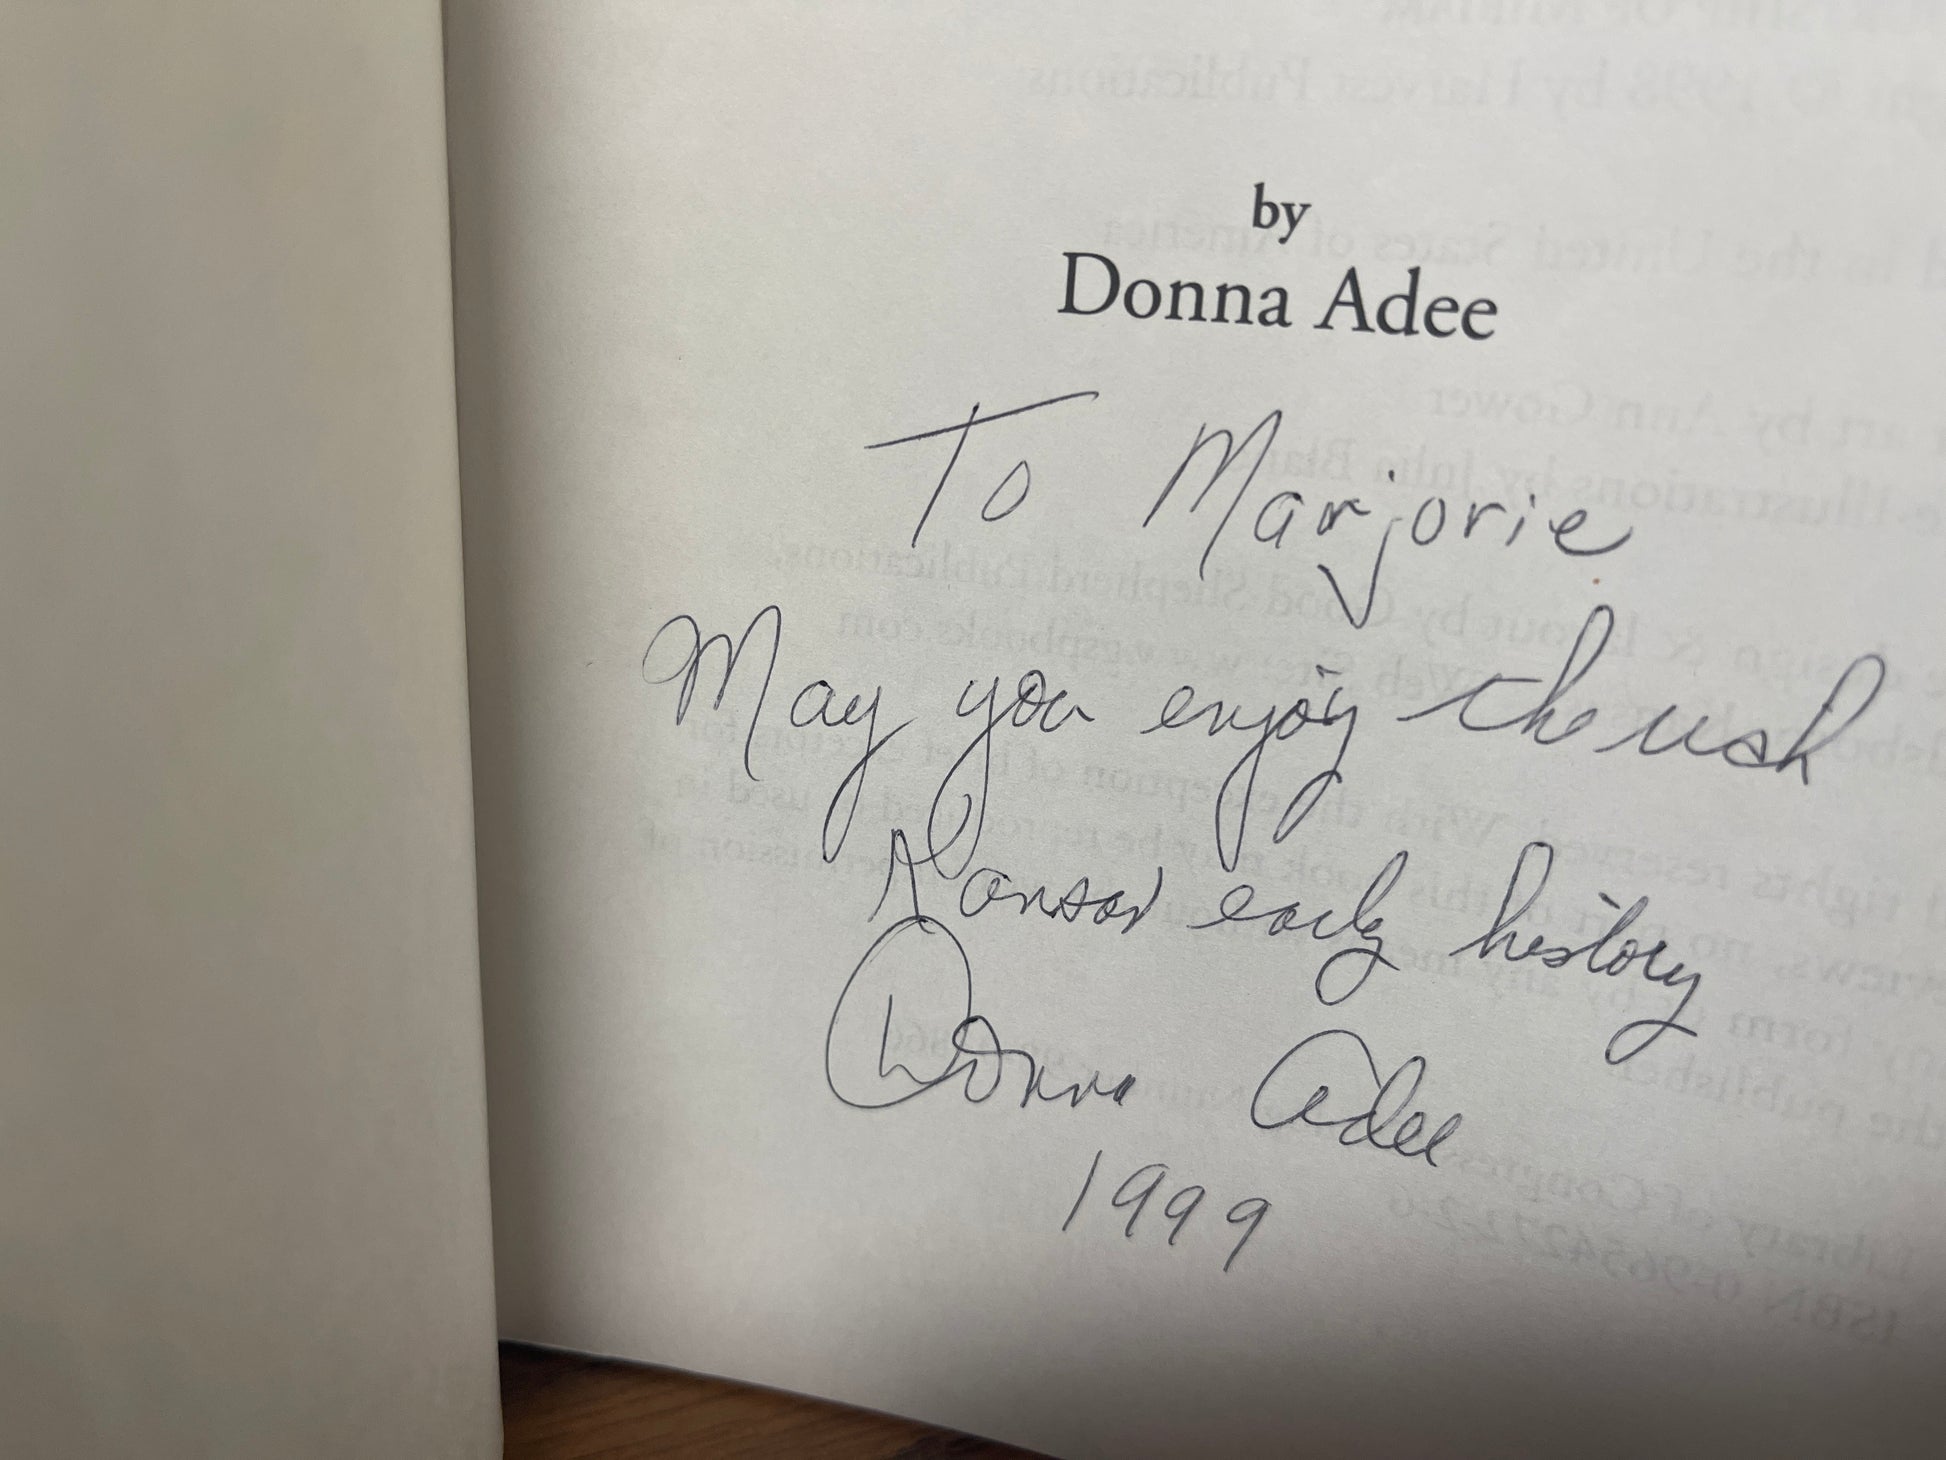 by
Donna Adee
To Marjorie
May you enjoy cherish
Kansas early history
Donna Adee
1999